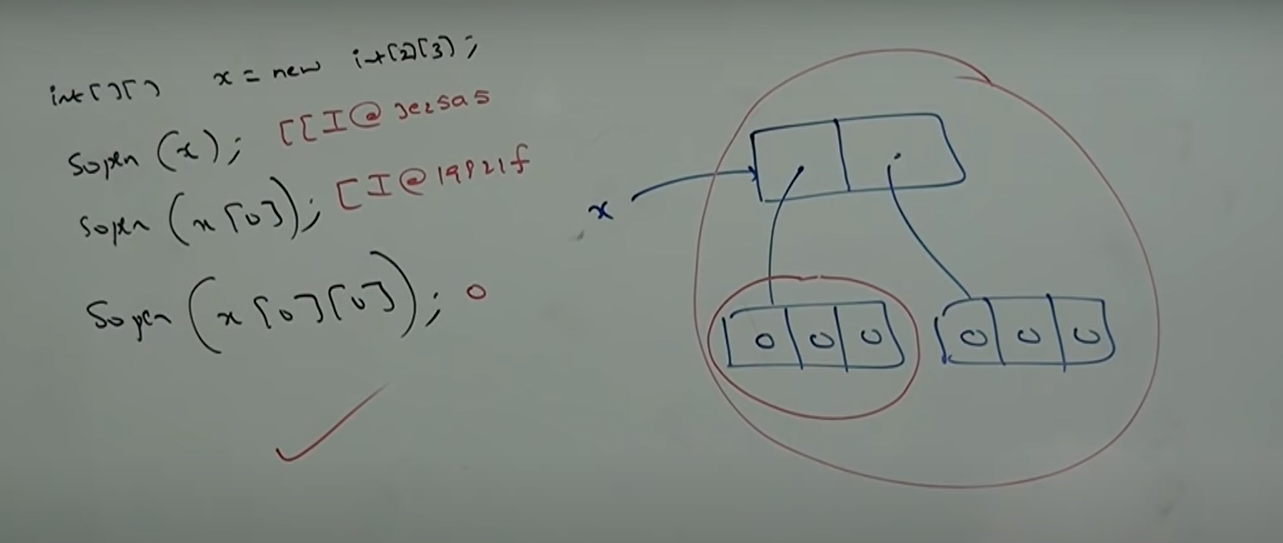 int[][] x = new int[2][3];
Sopln (x); [[I@3e25a5
Sopln (x[0]); [I@19821f
Sopln (x[0][0]); 0
x
0 0 0
0 0 0